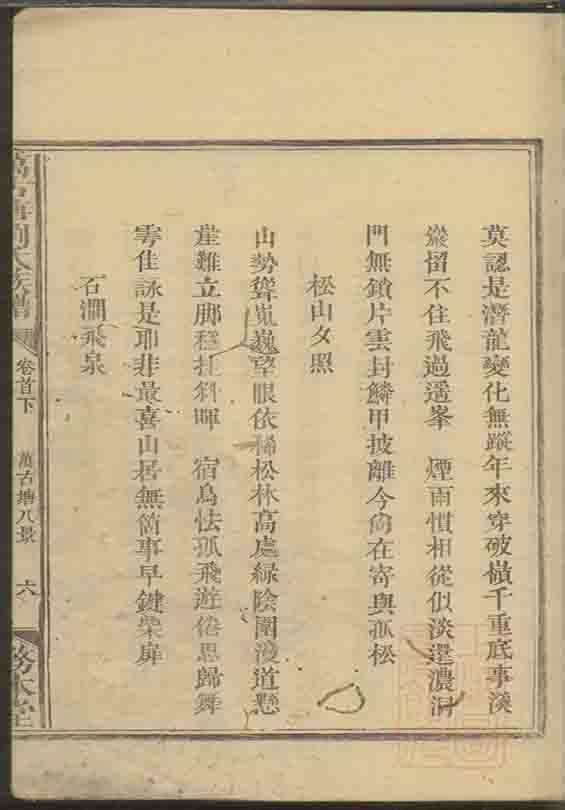 莫認是潛龍變化無蹤年來穿破嶺千重底事淡
蹤留不住飛過遥峯　煙雨慣相從似淡還濃洞
門無鎖片雲封鱗甲披離今尚在寄與孤松
松山夕照
山勢聳嵬巍望眼依稀松林高處綠陰圍淺道懸
崖難立脚穩挂斜暉　宿鳥怯孤飛遊倦思歸舞
雩佳詠是耶非最喜山居無箇事早鍵柴扉
石澗飛泉
萬古塘劉氏族譜
卷首下
萬古塘八景
六
務本堂